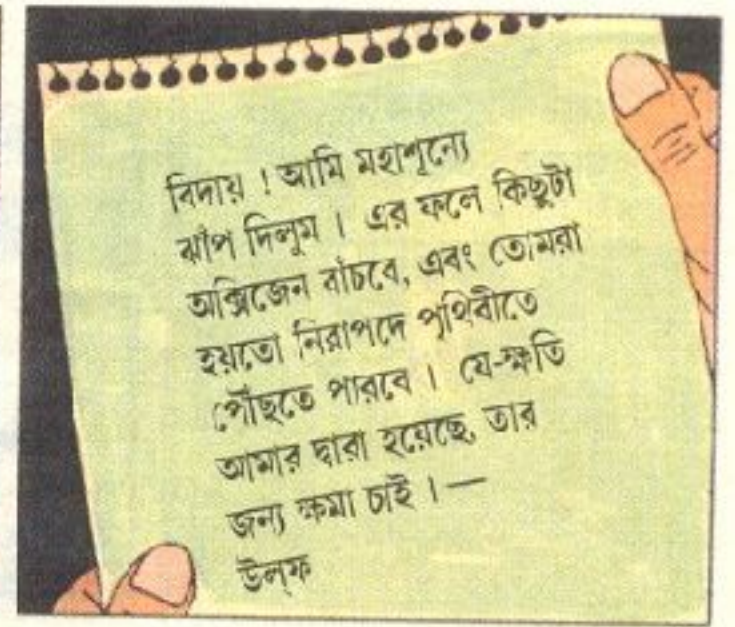 বিদায় ! আমি মহাশূন্যে
ঝাঁপ দিলুম । এর ফলে কিছুটা
অক্সিজেন বাঁচবে, এবং তোমরা
হয়তো নিরাপদে পৃথিবীতে
পৌঁছতে পারবে । যে-ক্ষতি
আমার দ্বারা হয়েছে, তার
জন্য ক্ষমা চাই । —
উল্‌ফ